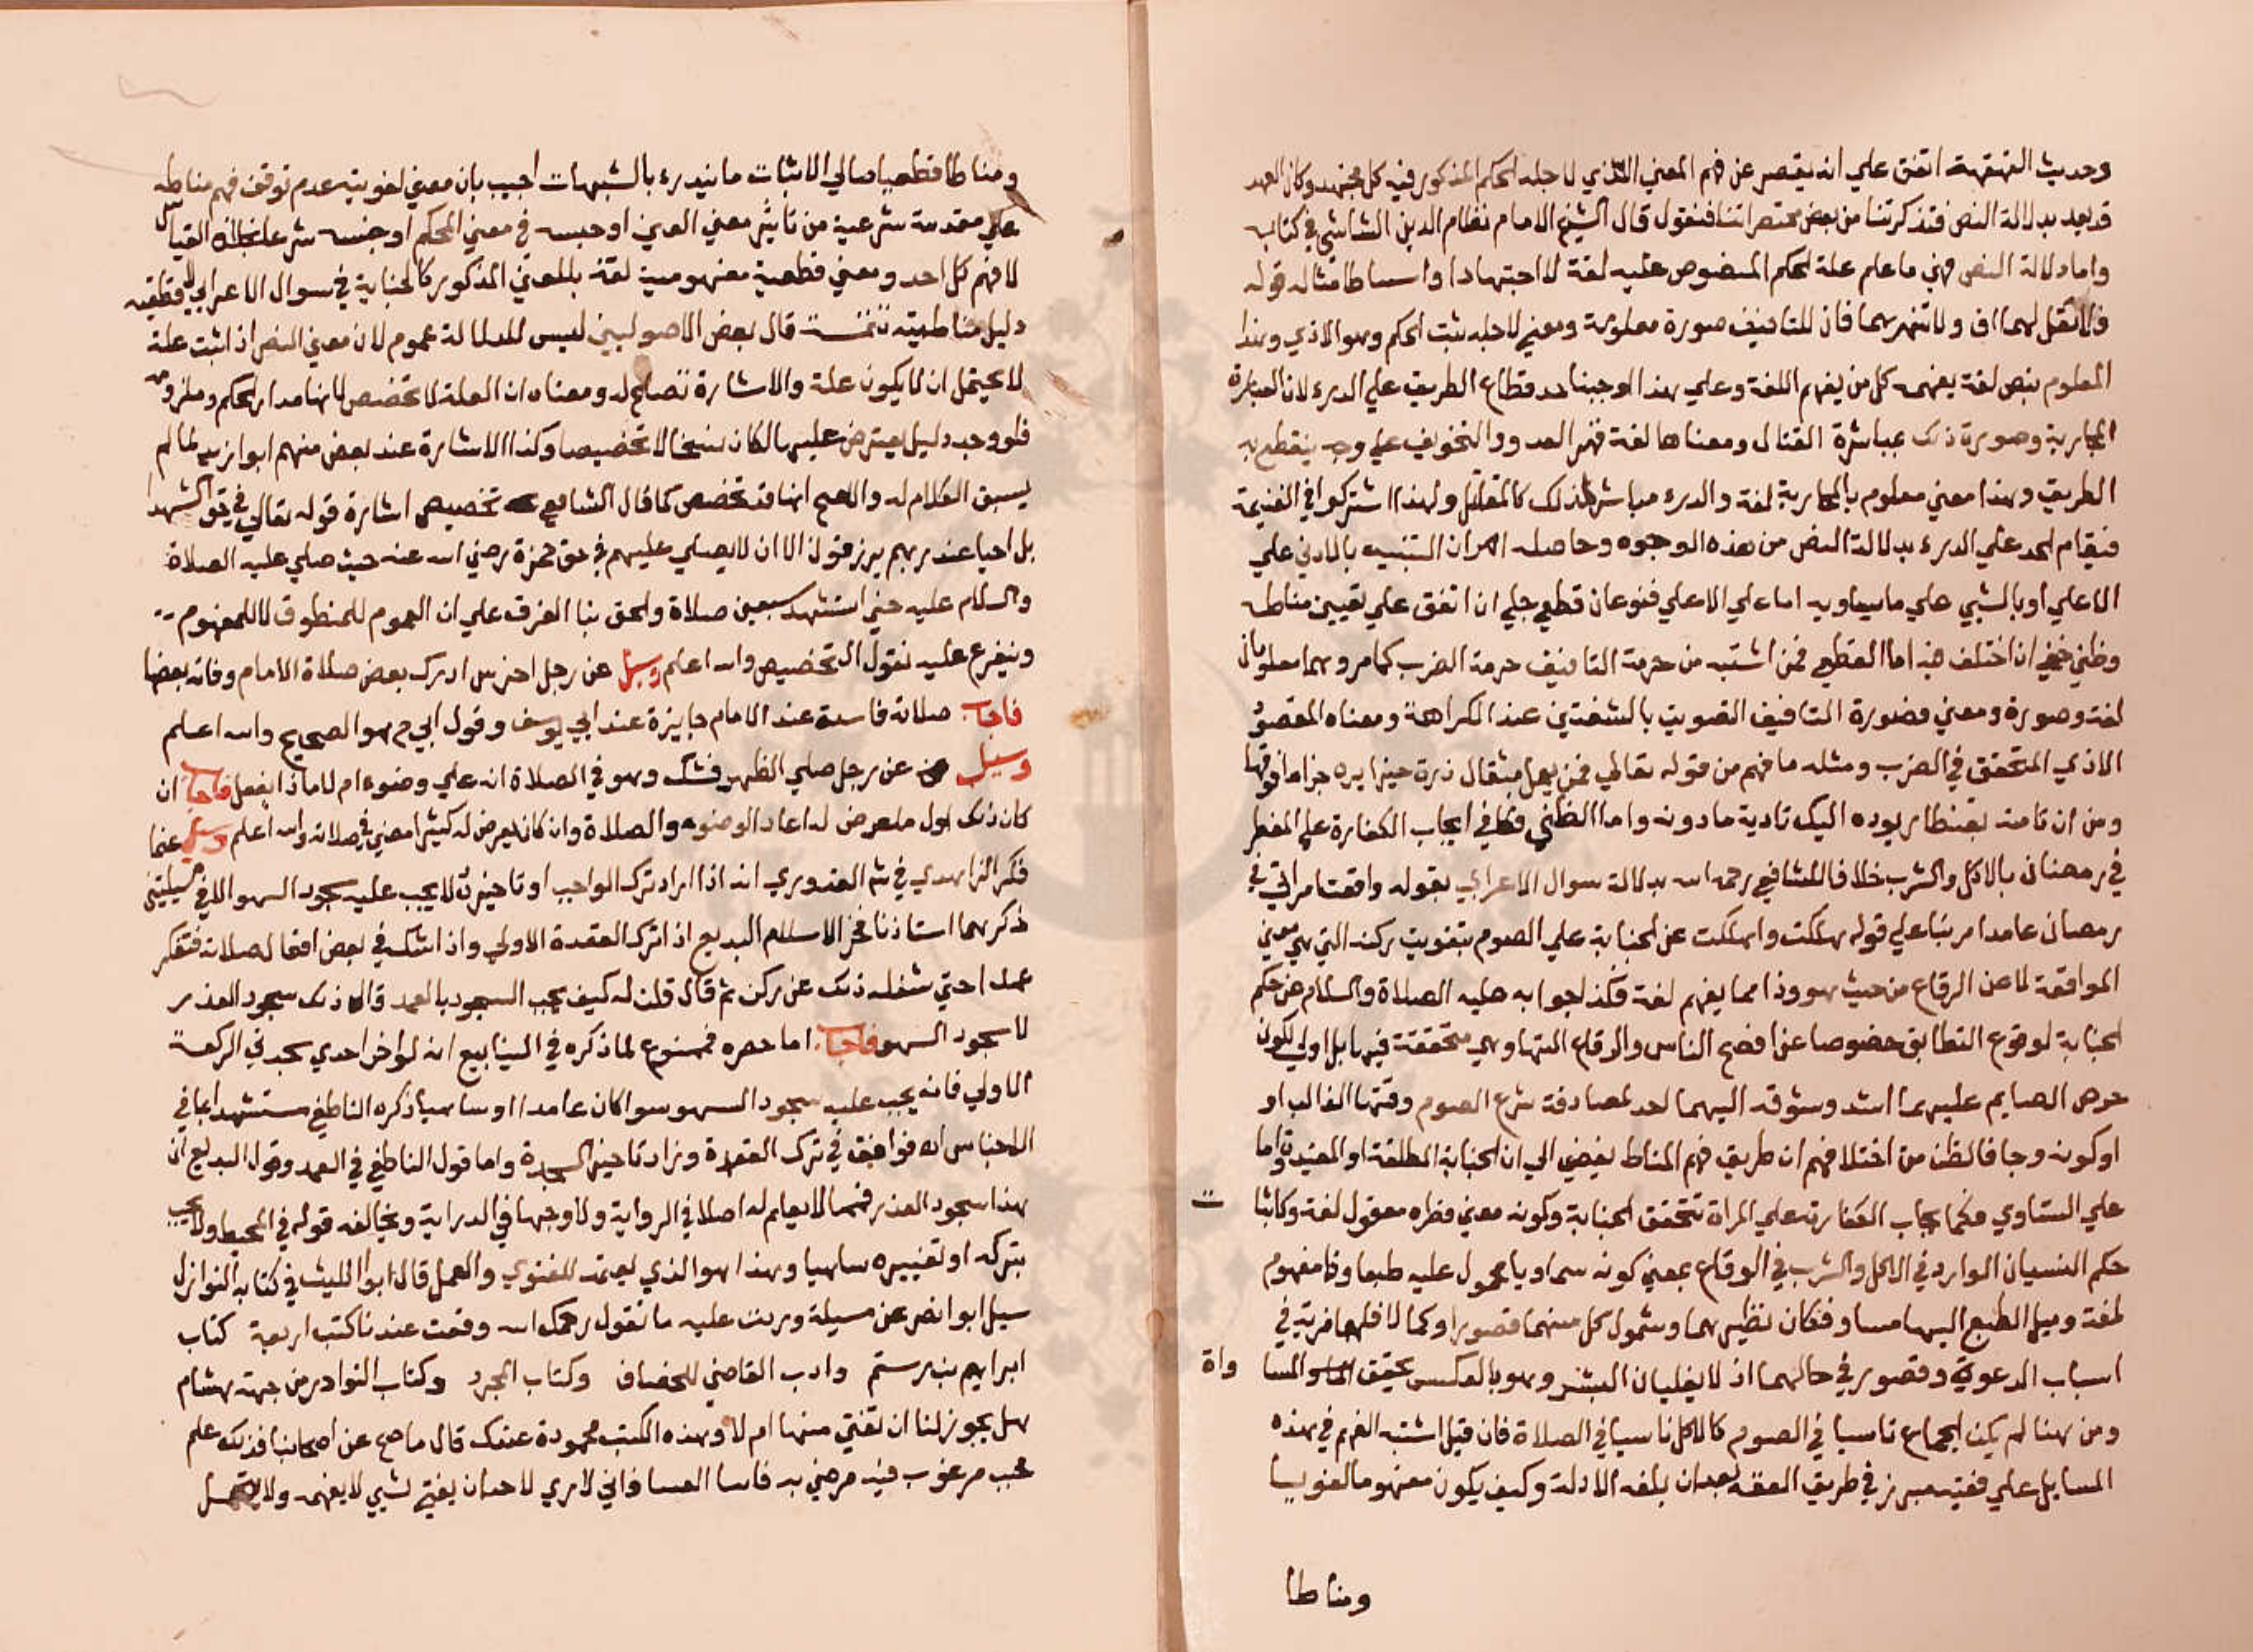 وحديث القهقهة اتفق علي انه يقتصر عن فهم المعني الذي لاجله الحكم المذكور فيه كل مجتهد وكان العهد
قد بعد بدلالة النص فتذكرتنا من بعض مختصراتنا فنقول قال الشيخ الامام نظام الدين الشاشي في كتابه
واما دلالة النص فهي ما علم علة للحكم المنصوص عليه لغة لا اجتهادا واستنباطا مثاله قوله
فلا تقل لهما اف ولا تنهرهما فان للتافيف صورة معلومة ومعني لاجله ثبت الحكم وهو الاذي وهذا
المعلوم بنص لغة يفهمه كل من يفهم اللغة وعلي هذا اوجبنا حد قطاع الطريق علي الردء لان العبارة
المحاربة وصورة ذلك بمباشرة القتال ومعناها لغة قهر العدو والتخويف علي وجه ينقطع به
الطريق وهذا معني معلوم بالمحاربة لغة والردء مباشر لذلك كالمقاتل ولهذا اشتركوا في الغنيمة
فيقام الحد علي الردء بدلالة النص من هذه الوجوه وحاصله ان التنبيه بالادني علي
الاعلي او بالشيي علي ما يساويه اما علي الاعلي فنوعان قطعي جلي ان اتفق علي تعيين مناطه
وظني خفي ان اختلف فيه اما القطعي فمن اشتبه من حرمة التافيف حرمة الضرب كما مر وهما معلومان
لغة وصورة ومعني فصورة التافيف التصويت بالشفتين عند الكراهة ومعناه المقصود
الاذي المتحقق في الضرب ومثله ما فهم من قوله تعالي فمن يعمل مثقال ذرة خيرا يره جزا ما فوقها
ومن ان تامنه بقنطار يوده اليك تادية ما دونه واما الظني فكا في ايجاب الكفارة علي المفطر
في رمضان بالاكل والشرب خلافا للشافعي رحمه الله بدلالة سوال الاعرابي بقوله واقعت امراتي في
رمضان عامدا مرتبا علي قوله هلكت واهلكت عن الجناية علي الصوم بتفويت ركنه التي هي معني
المواقعة لا عن الوقاع من حيث هو وذا مما يفهم لغة فكذا جوابه عليه الصلاة والسلام عن حكم
الجناية لوقوع التطابق خصوصا عن افصح الناس والوقاع التها وهي متحققة فيهما بل اولي لكون
حرص الصايم عليهما اشد وشوقه اليهما احد لمصادفة شرع الصوم وقتها الغالب او
او كونه وجا فالظن من اختلافهم ان طريق فهم المناط يفضي الي ان الجناية المطلقة او المقيدة واما
علي التساوي فكما يجاب الكفارة علي المراة تتحقق الجناية وكونه معني فطره معقول لغة وكاثبات
حكم النسيان الوارد في الاكل والشرب في الوقاع بمعني كونه سماويا محمول عليه طبعا وذا مفهوم
لغة وميل الطبع اليها مساو فكان نظيرهما وشمول كل منهما قصورا وكمالا فلهما مزية في
اسباب الدعوة وقصور في حالهما اذ لا يغلبان البشر وهو بالعكس تحقق المساواة
ومن هنا لم يكن الجماع ناسيا في الصوم كالاكل ناسيا في الصلاة فان قيل اشتبه الفهم في هذه
المسايل علي فقيه مبرز في طريق الفقه بعد ان بلغه الادلة وكيف يكون مفهوما لغويا
ومناطا
ومناطا قطعيا صالي الاثبات ما يندرء بالشبهات اجيب بان معني لغويته عدم توقف فهم مناطه
علي مقدمة شرعية من تاثير معني العين او جنسه في معني الحكم او جنسه شرعا بخلاف القياس
لا فهم كل احد ومعني قطعية مفهوميته لغة بالمعني المذكور كالجناية في سوال الاعرابي لا قطعية
دليل مناطيته تتمة قال بعض الاصوليين ليس للدلالة عموم لان معني النص اذا ثبت علة
لا يحتمل ان لا يكون علة والاشارة تصلح له ومعناه ان العلة لا تخصص لانها مدار الحكم وملزومه
فلو وجد دليل يعترض عليها لكان نسخا لا تخصيصا وكذا الاشارة عند بعض منهم ابو زيد لما لم
يسبق الكلام له والاصح انها قد تخصص كما قال الشافعي تخصيص اشارة قوله تعالي في حق الشهدا
بل احيا عند ربهم يرزقون الا ان لا يصلي عليهم في حق حمزة رضي الله عنه حيث صلي عليه الصلاة
والسلام عليه حين استشهد سبعين صلاة والحق بنا الفرق علي ان العموم للمنطوق لا للمفهوم
ويتفرع عليه نقول التخصيص والله اعلم وسيل عن رجل اخرس ادرك بعض صلاة الامام وفاته بعضها
فاجاب صلاته فاسدة عند الامام جايزة عند ابي يوسف وقول ابي ح هو الصحيح والله اعلم
وسيل عن رجل صلي الظهر فشك وهو في الصلاة انه علي وضوء ام لا ماذا يفعل فاجاب ان
كان ذلك اول ما عرض له اعاد الوضوء والصلاة وان كان يعرض له كثيرا مضي في صلاته والله اعلم وسيل عما
ذكر الزاهدي في شرح القدوري انه اذا اراد ترك الواجب او تاخيره لا يجب عليه سجود السهو الا في مسيلتين
ذكرهما استاذنا فخر الاسلام البديع اذا ترك القعدة الاولي واذا شك في بعض افعال صلاته فتفكر
عمدا حتي شغله ذلك عن ركن ثم قال قلت له كيف يجب السجود بالعمد قال ذلك سجود العذر
لا سجود السهو فاجاب اما حصره فممنوع لما ذكره في الينابيع انه لو اخر احدي سجدتي الركعة
الاولي فانه يجب عليه سجود السهو سوا كان عامدا او ساهيا ذكره الناطفي مستشهدا بما في
الاجناس انه فوافق في ترك القعدة وزاد تاخير السجدة واما قول الناطفي في العمد وقول البديع ان
هذا سجود العذر فمما لا يعلم له اصلا في الرواية ولا وجها في الدراية ويخالفه قوله في المحيط ولا يجب
بتركه او تغييره ساهيا وهذا هو الذي يعتمد للفتوي والعمل قال ابو الليث في كتابه النوازل
سيل ابو نصر عن مسيلة وردت عليه ما تقول رحمك الله وقعت عندنا كتب اربعة كتاب
ابراهيم بن رستم وادب القاضي للخصاف وكتاب المجرد وكتاب النوادر من جهة هشام
هل يجوز لنا ان نفتي منها ام لا وهذه الكتب محمودة عندك قال ما صح عن اصحابنا فذلك علم
محبب مرغوب فيه مرضي به فاما الفتيا فاني لا اري لاحد ان يفتي بشيي لا يفهمه ولا يتحمل